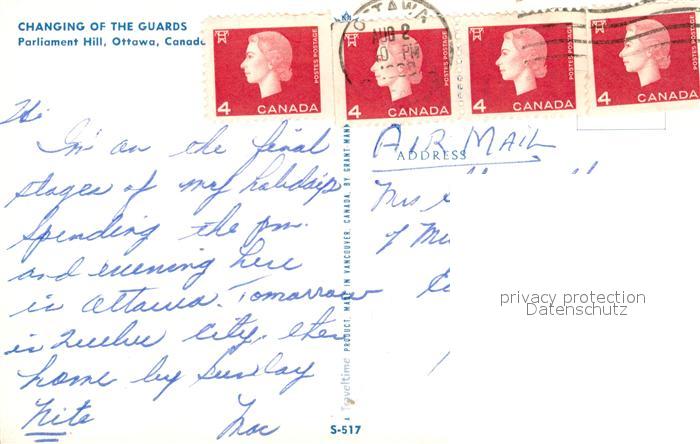 CHANGING OF THE GUARDS
Parliament Hill, Ottawa, Canada
4 CANADA POSTES POSTAGE
4 CANADA
4 CANADA POSTES POSTAGE
4 CANADA POSTES POSTAGE
OTTAWA
AUG 2
PM
AIR MAIL
ADDRESS
Hi
I'm on the final
stages of my holidays
spending the pm.
and evening here
in Ottawa. Tomorrow
in Quebec City. then
home by Sunday
Nite
Mrs
privacy protection
Datenschutz
A Traveltime PRODUCT, MADE IN VANCOUVER, CANADA, BY GRANT MANN
S-517